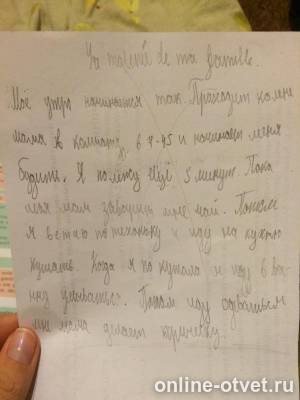 La matené de ma familé.
Моё утро начинается так. Приходит ко мне
мама в комнату, в 7-45 и начинает меня
будить. Я полежу ещё 5 минут. Пока
моя мам заводит мне чай. Потом
я встаю потехоньку и иду на кухню
кушать. Когда я покушаю и иду в ва
ну умыватьс. Потом иду одеватьс
мне мама делает причёску.
online-otvet.ru